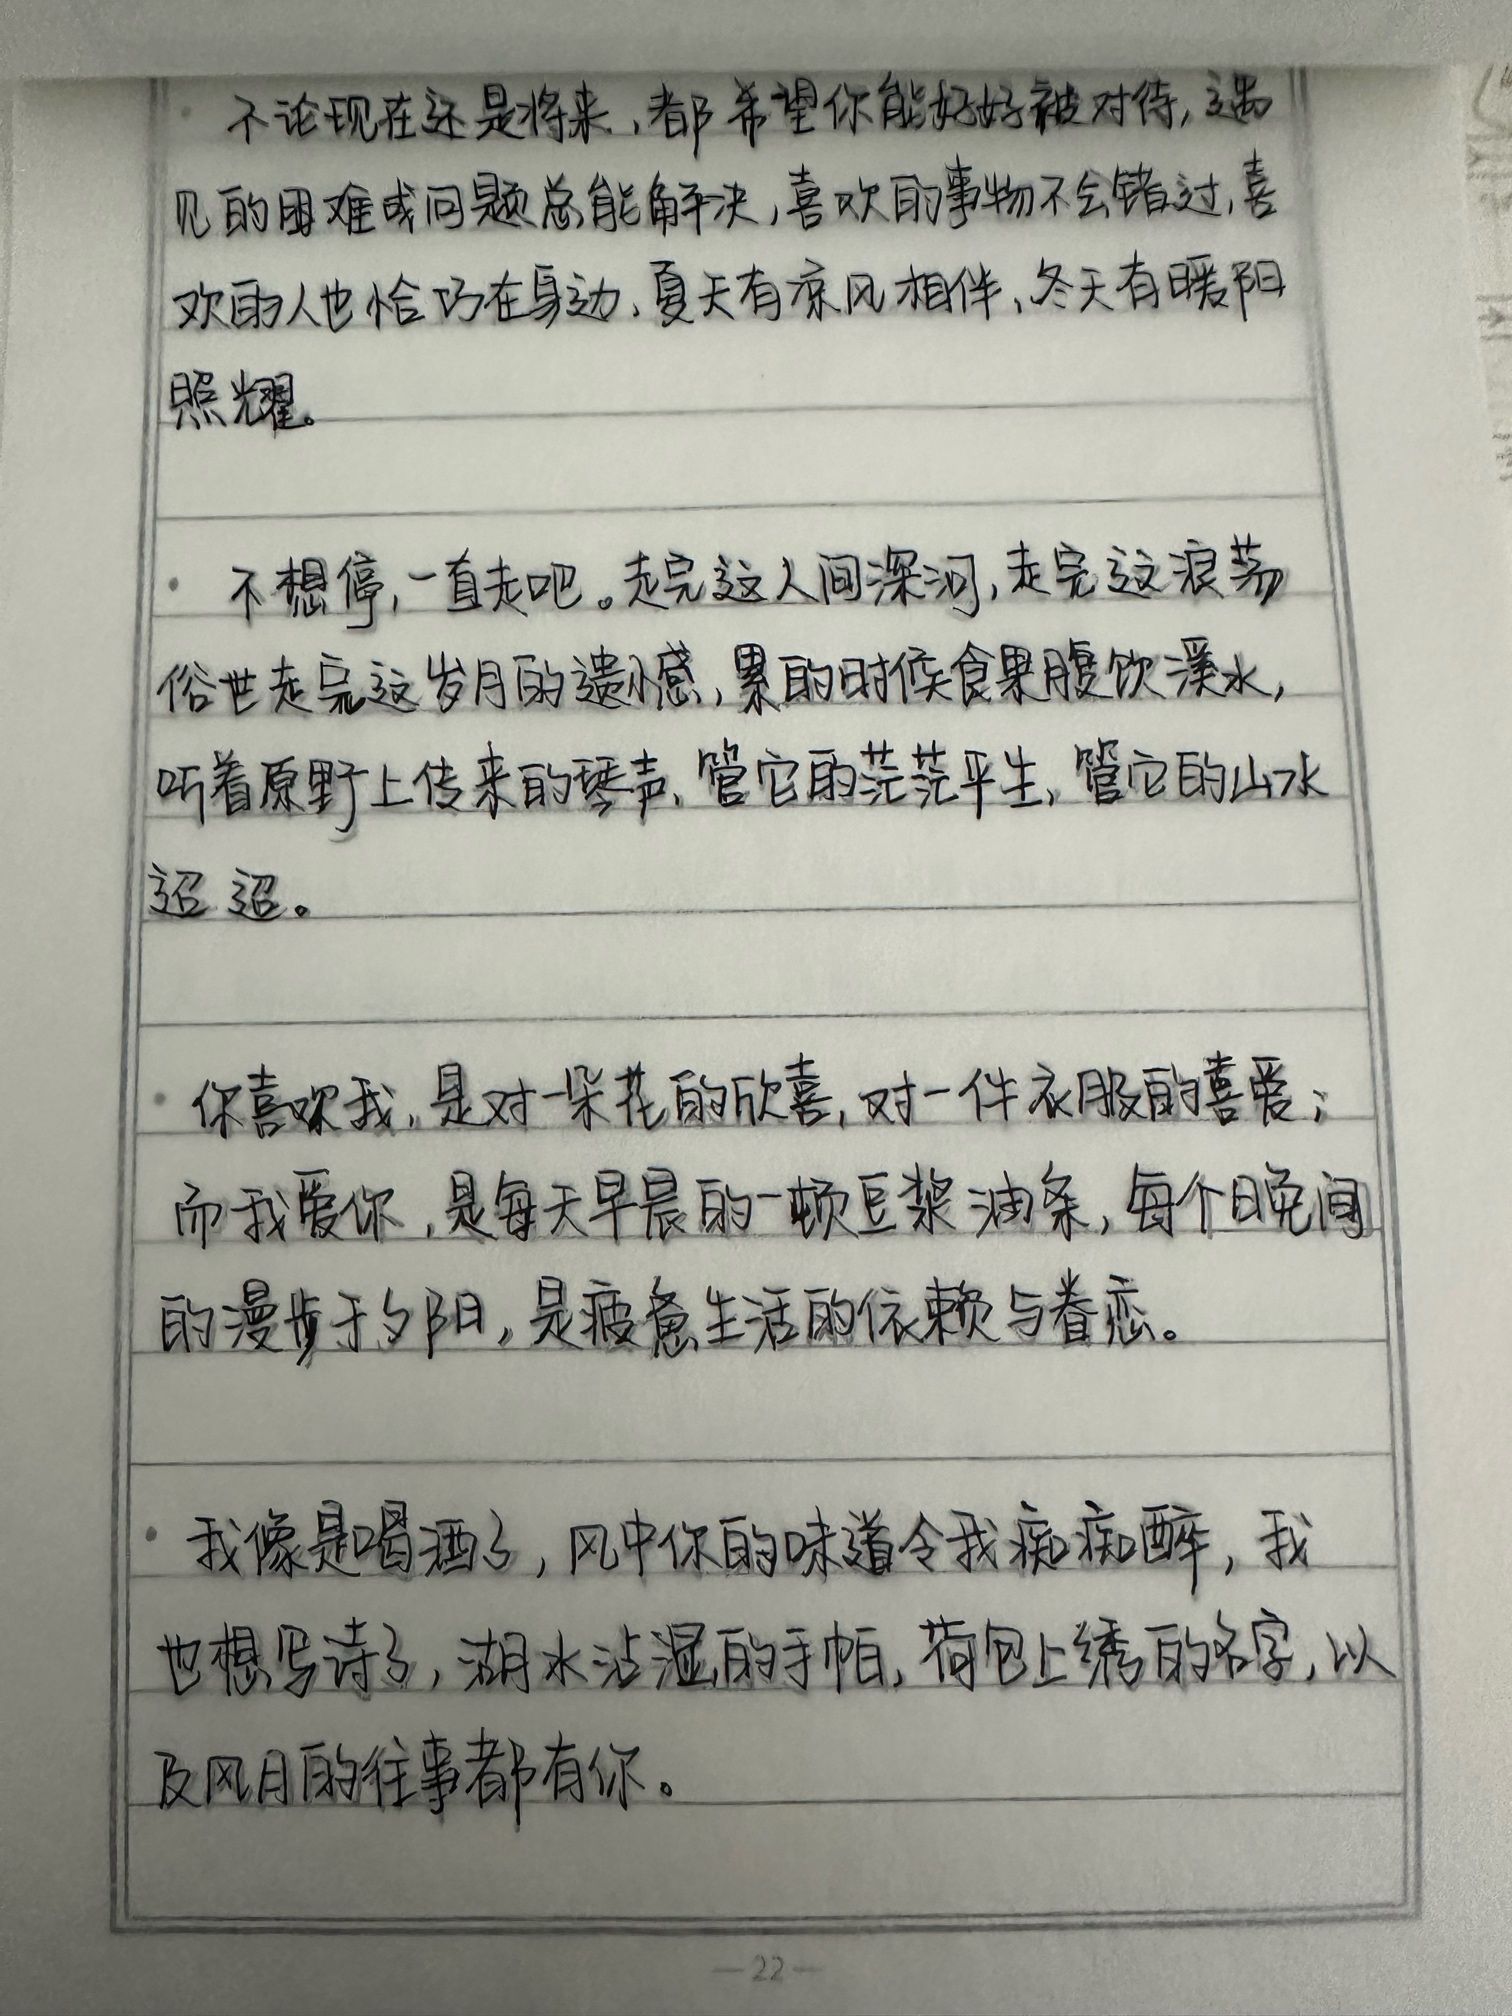 · 不论现在还是将来,都希望你能好好被对待,遇
见的困难或问题总能解决,喜欢的事物不会错过,喜
欢的人也恰巧在身边,夏天有凉风相伴,冬天有暖阳
照耀。
· 不想停,一直走吧。走完这人间深河,走完这浪荡
俗世走完这岁月的遗憾,累的时候食果腹饮溪水,
听着原野上传来的琴声,管它的茫茫平生,管它的山水
迢迢。
· 你喜欢我,是对一朵花的欣喜,对一件衣服的喜爱;
而我爱你,是每天早晨的一顿豆浆油条,每个晚间
的漫步于夕阳,是疲惫生活的依赖与眷恋。
· 我像是喝酒了,风中你的味道令我痴痴醉,我
也想写诗了,湖水沾湿的手帕,荷包上绣的名字,以
及风月的往事都有你。
— 22 —